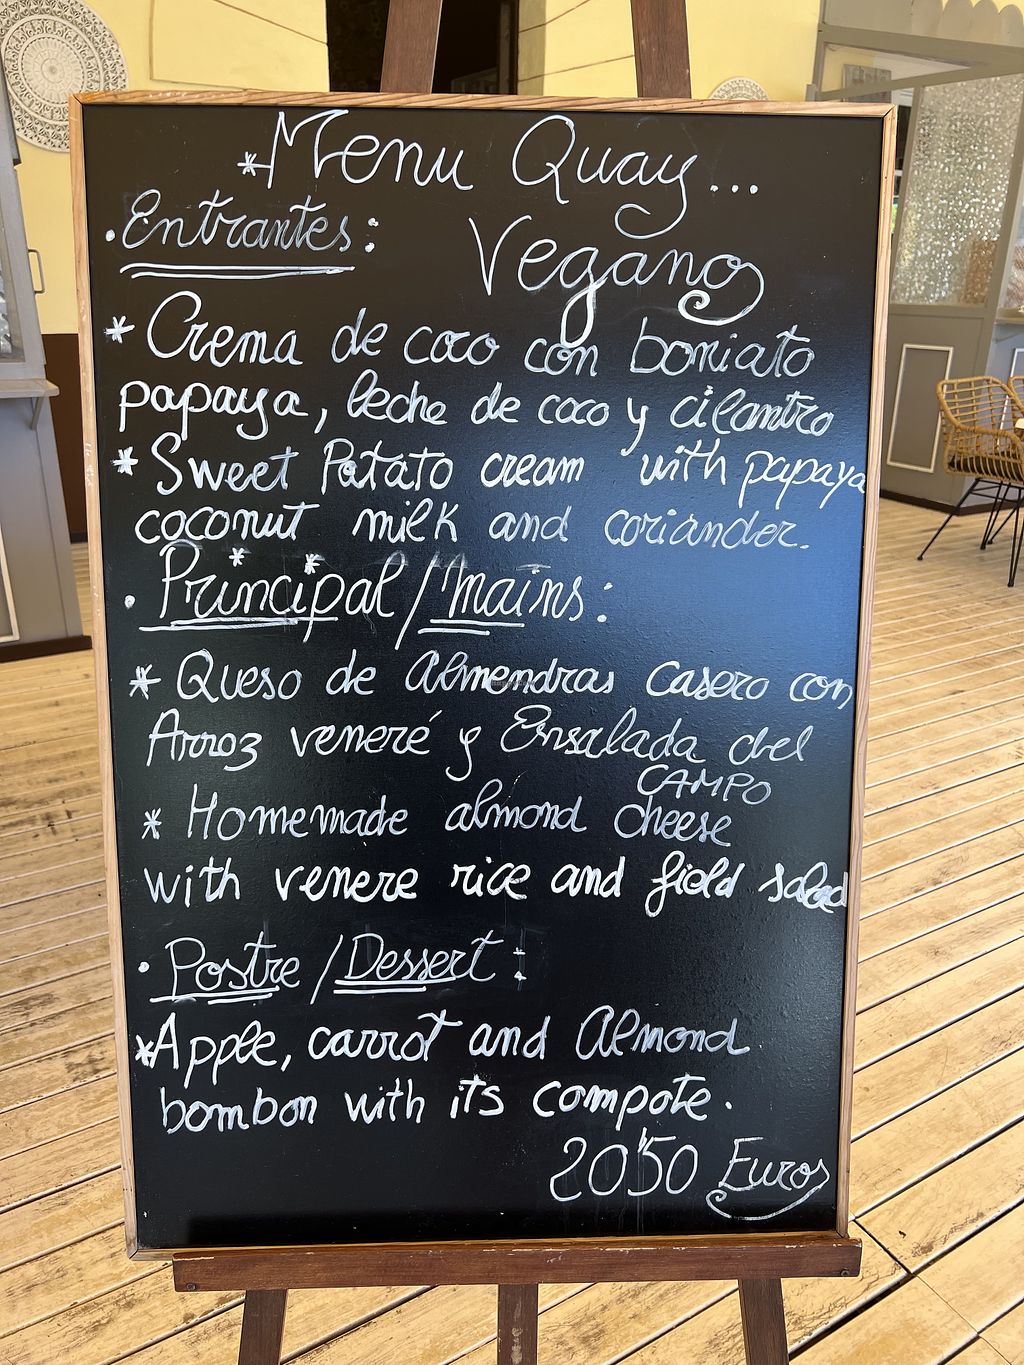 *Menu Quay...
•Entrantes:
Vegano
* Crema de coco con boniato
papaya, leche de coco y cilantro
* Sweet Potato cream with papaya
coconut milk and coriander.
• Principal/mains:
* Queso de Almendras Casero con
Arroz veneré y Ensalada del
CAMPO
* Homemade almond cheese
with venere rice and field salad
• Postre/Dessert:
*Apple, carrot and Almond
bombon with its compote.
20'50 Euros